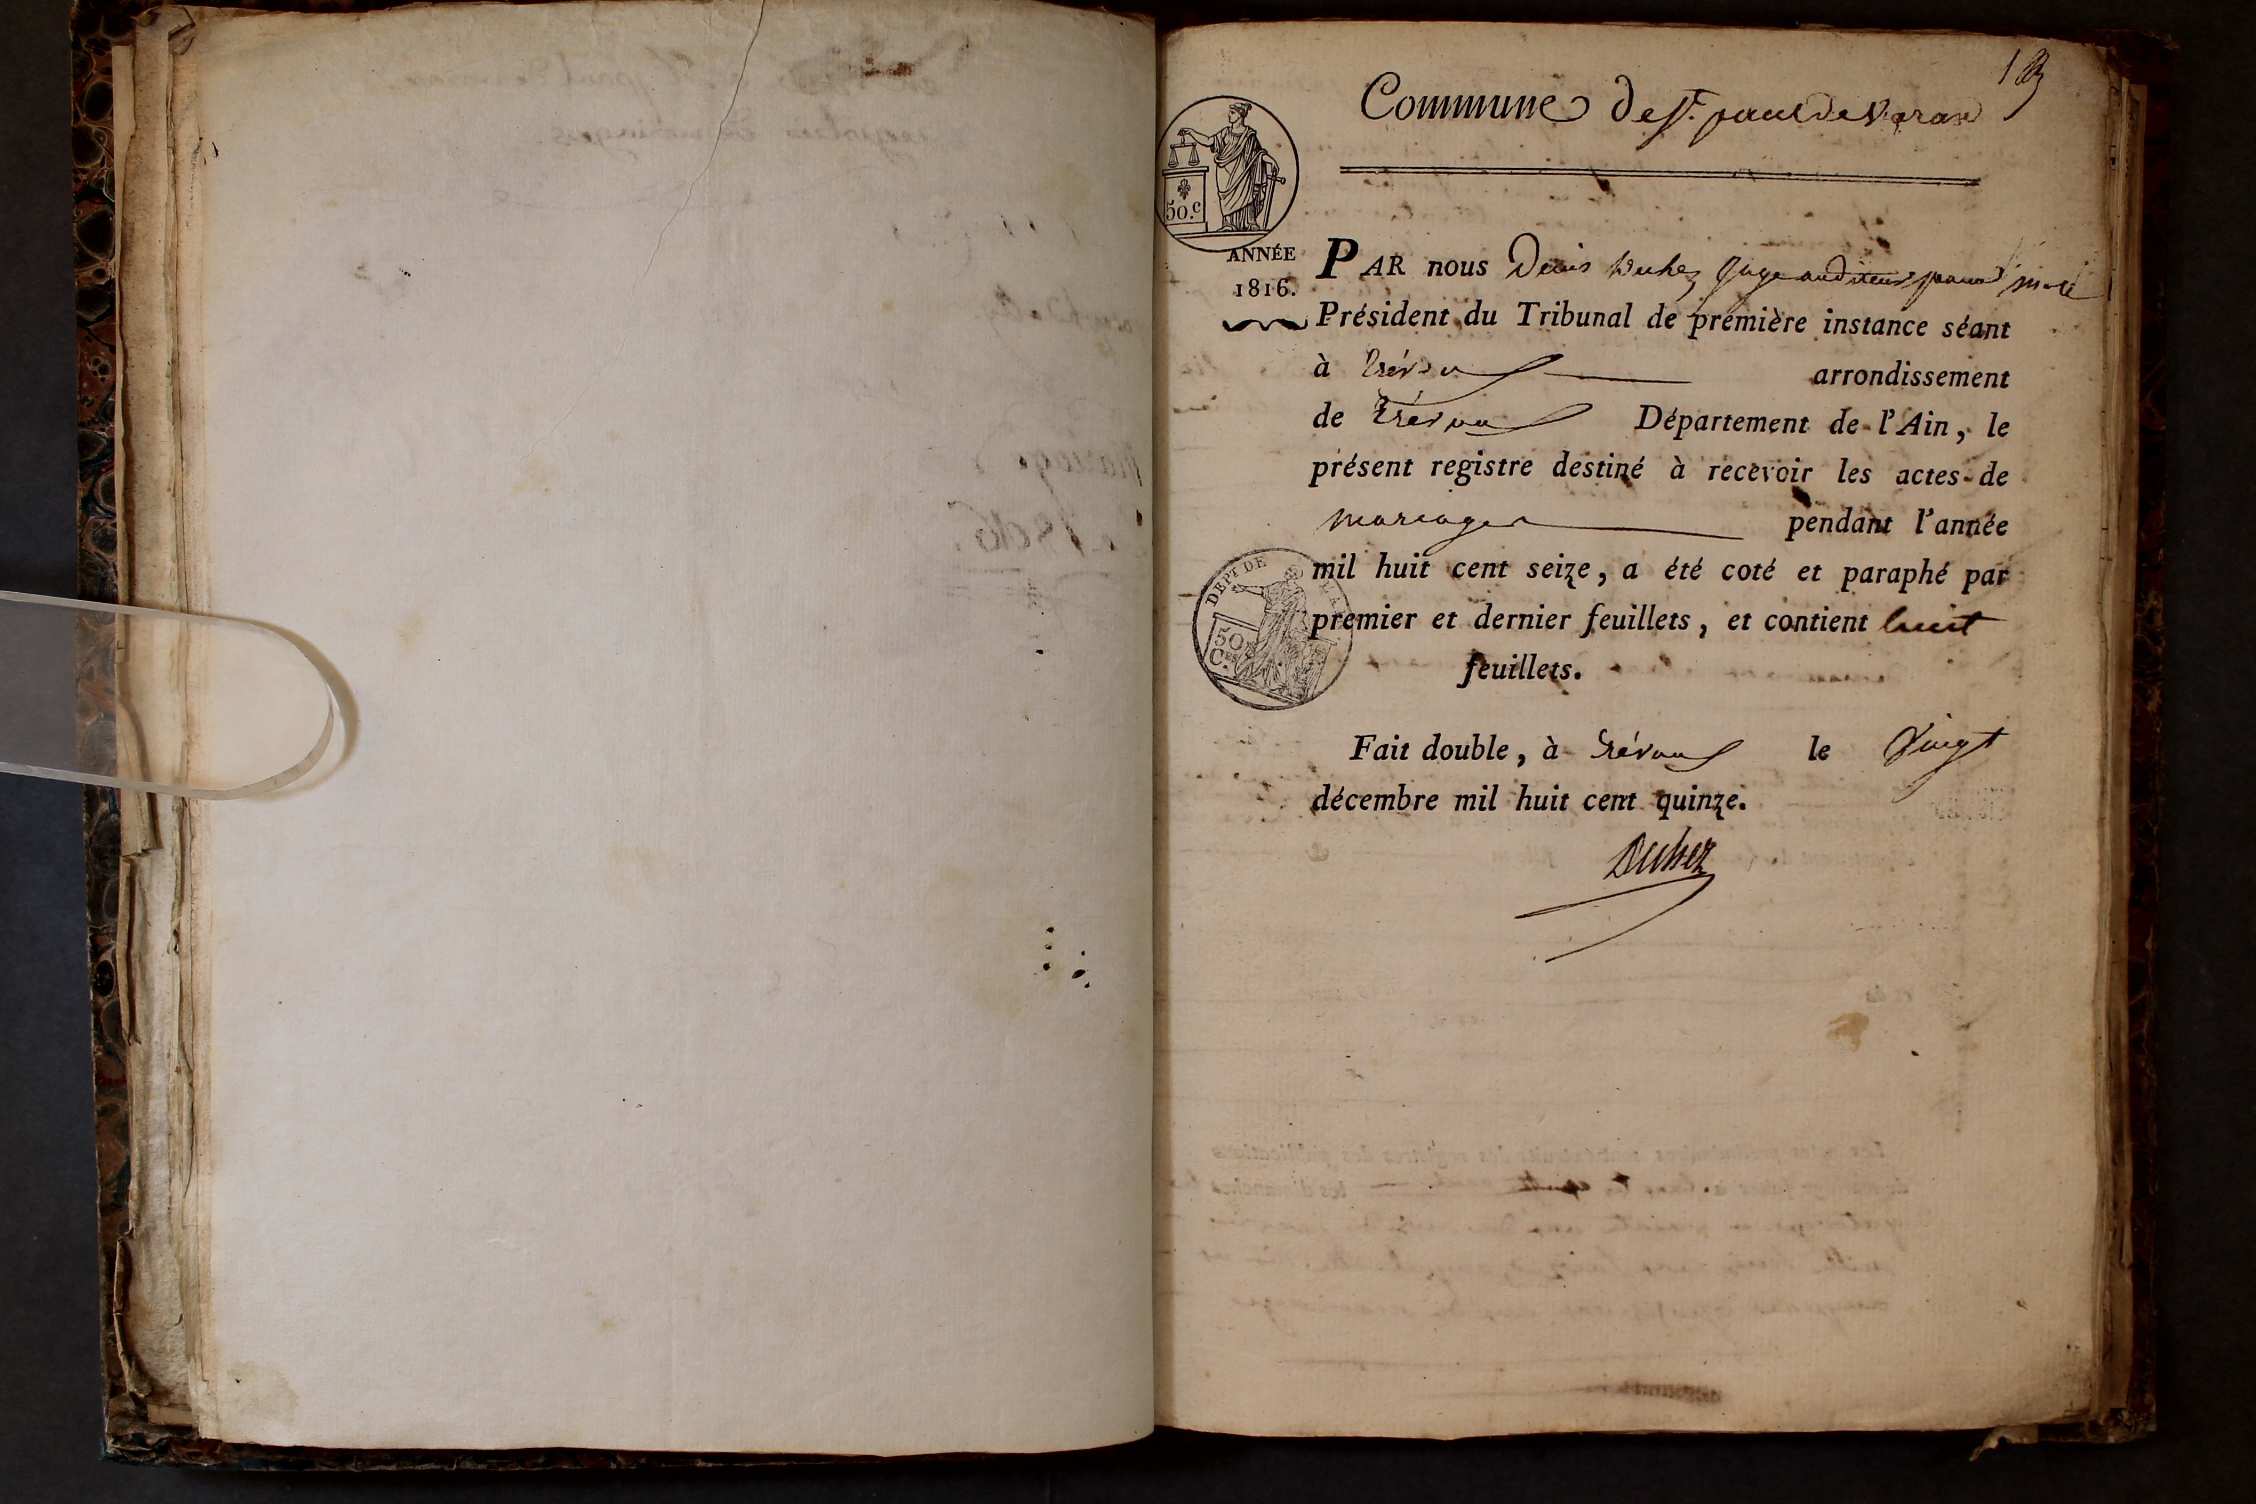 1
Commune de St. paul de Varax
50.c
ANNÉE
1816.
PAR nous Denis Duhez Juge auditeur pour Mr le
Président du Tribunal de première instance séant
à Trévoux arrondissement
de Trévoux Département de l'Ain, le
présent registre destiné à recevoir les actes de
mariages pendant l'année
mil huit cent seize, a été coté et paraphé par
premier et dernier feuillets, et contient huit
feuillets.
DEPT DE L'AIN
50
Ces
Fait double, à Trévoux le Vingt
décembre mil huit cent quinze.
Duhez